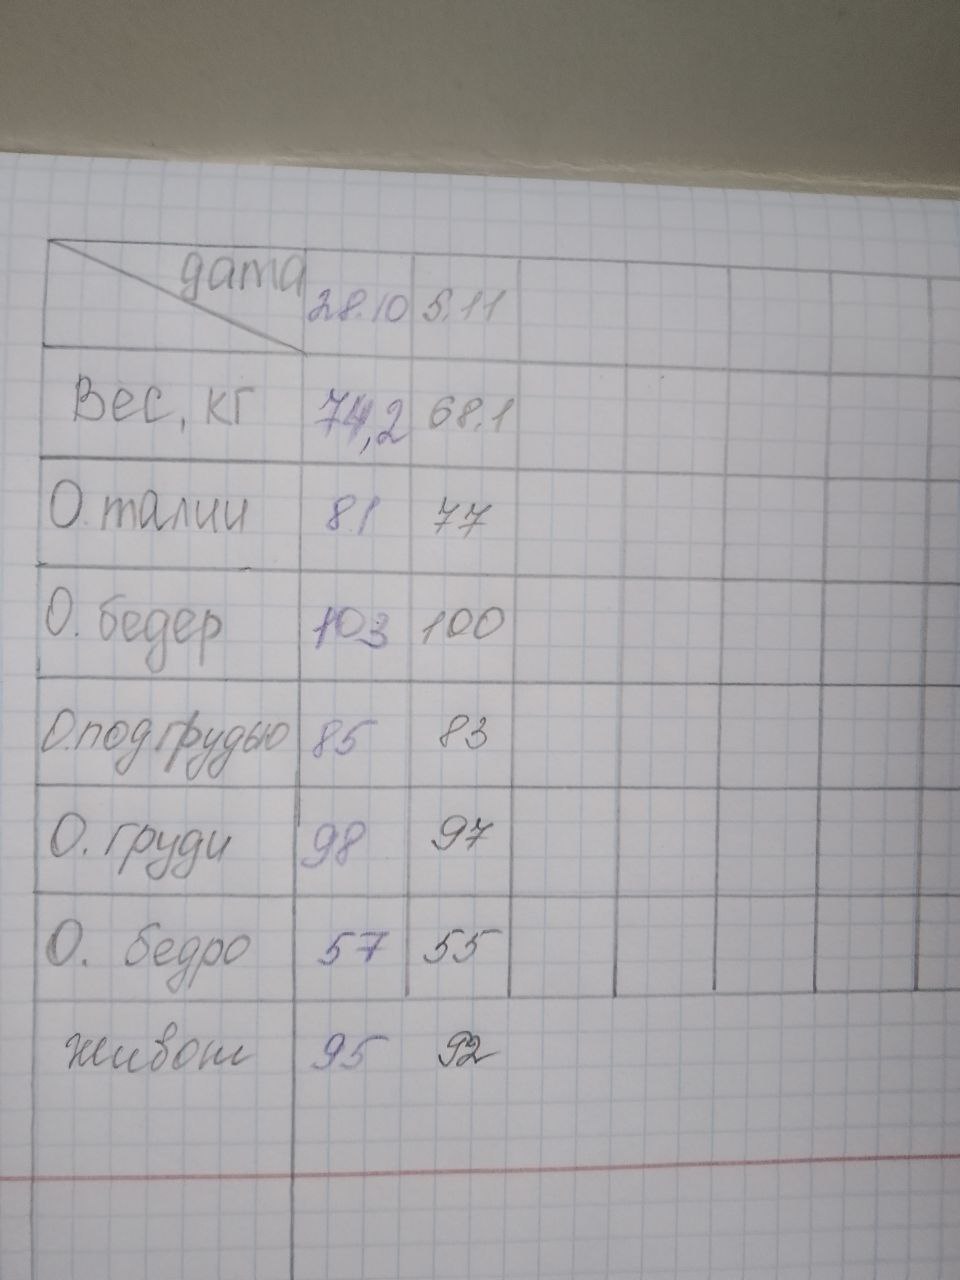 дата 28.10 5.11
Вес, кг 74,2 68.1
О. талии 81 77
О. бедер 103 100
О. под грудью 85 83
О. груди 98 97
О. бедро 57 55
живот 95 92